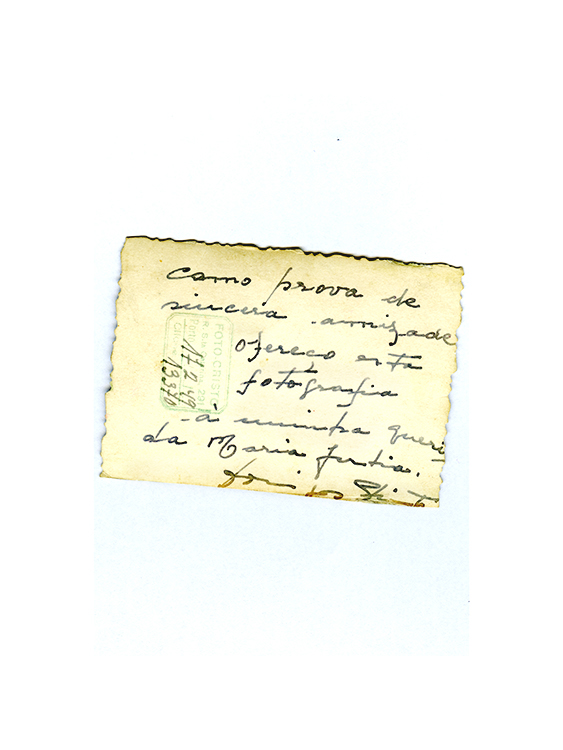 Como prova de
sincera amizade
ofereço esta
fotografia
à minha queri
da Maria
FOTO.CRISTO
17.2.49
13370